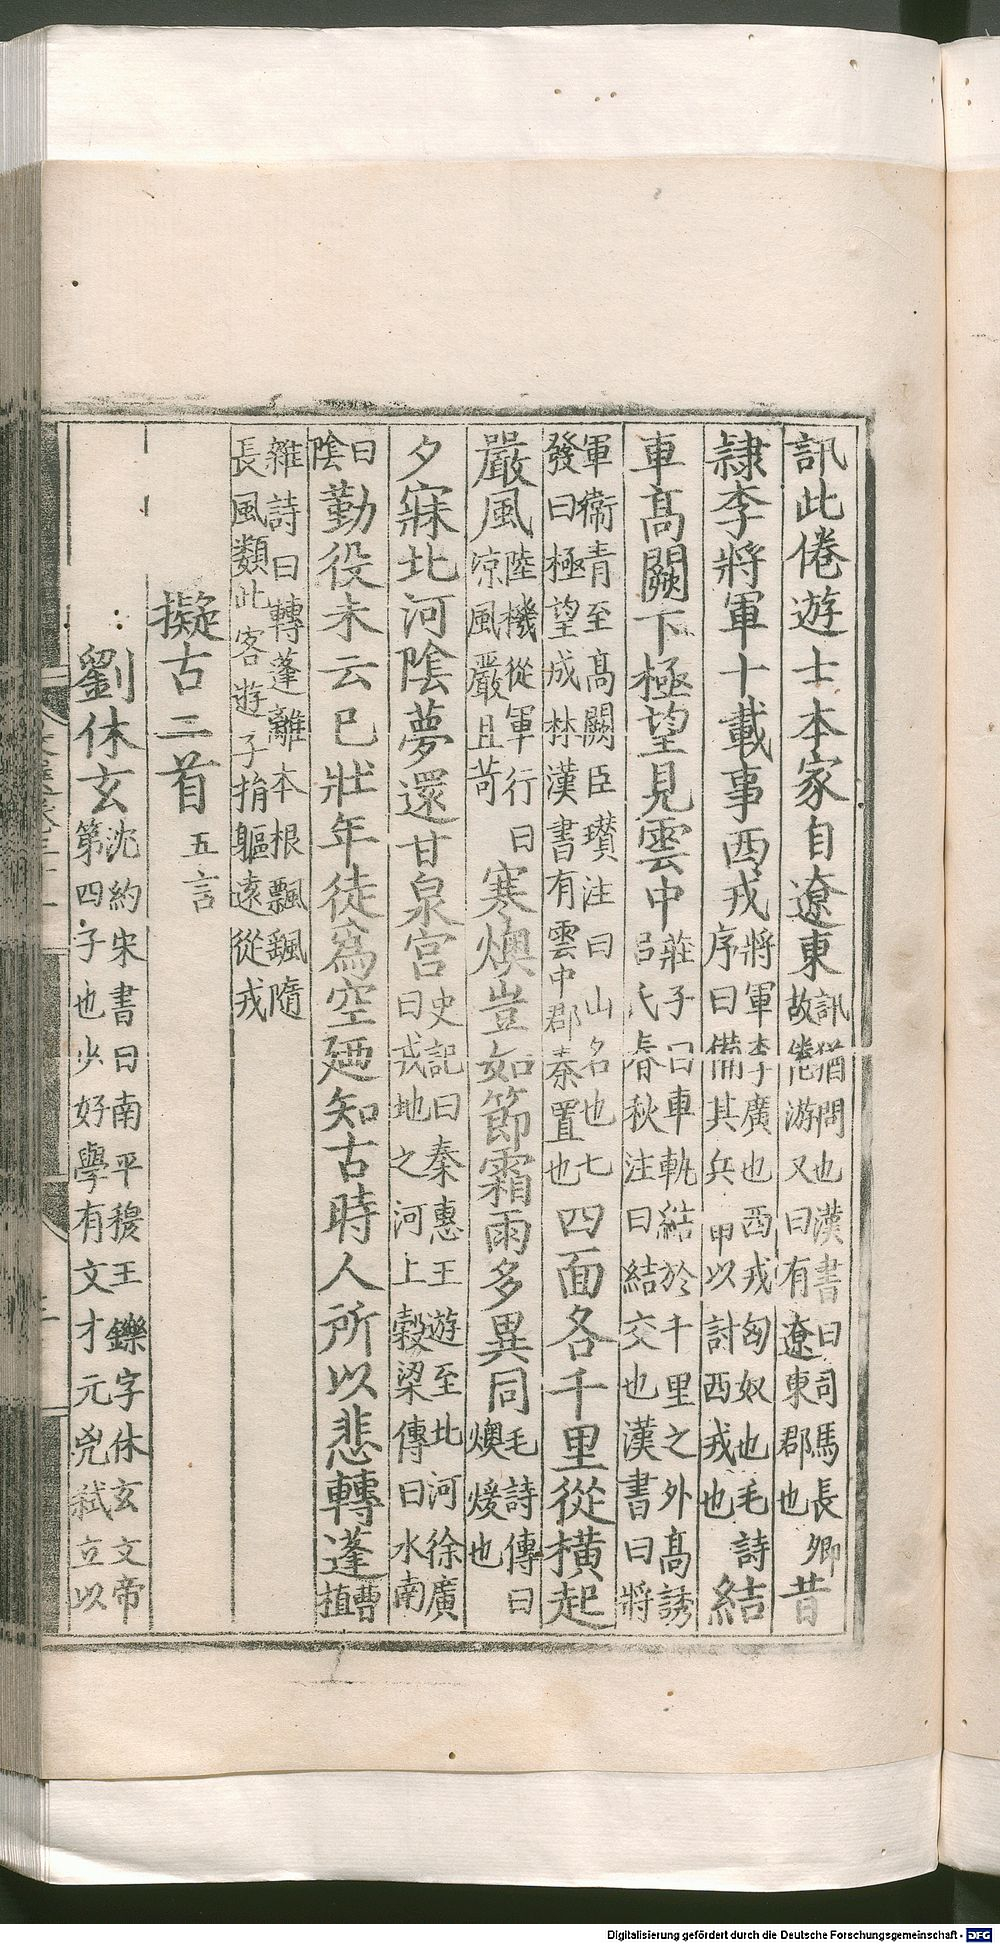 訊此倦遊士本家自遼東訊猶問也漢書曰司馬長卿故倦游又曰有遼東郡也昔
隷李將軍十載事西戎將軍李廣也西戎匈奴也毛詩序曰備其兵甲以討西戎也結
車高闕下極望見雲中莊子曰車軌結於千里之外高誘呂氏春秋注曰結交也漢書曰將
軍衛青至高闕臣瓚注曰山名也七發曰極望成林漢書有雲中郡秦置也四面各千里從橫起
嚴風陸機從軍行曰涼風嚴且苛寒燠豈如節霜雨多異同毛詩傳曰燠煖也
夕寐北河陰夢還甘泉宮史記曰秦惠王遊至北河徐廣曰戎地之河上穀梁傳曰水南
曰陰勤役未云已壯年徒爲空廼知古時人所以悲轉蓬曹植
雜詩曰轉蓬離本根飄颻隨長風類此客遊子捐軀遠從戎
擬古二首五言
劉休玄沈約宋書曰南平穆王鑠字休玄文帝第四子也少好學有文才元兇弑立以
Digitalisierung gefördert durch die Deutsche Forschungsgemeinschaft - DFG